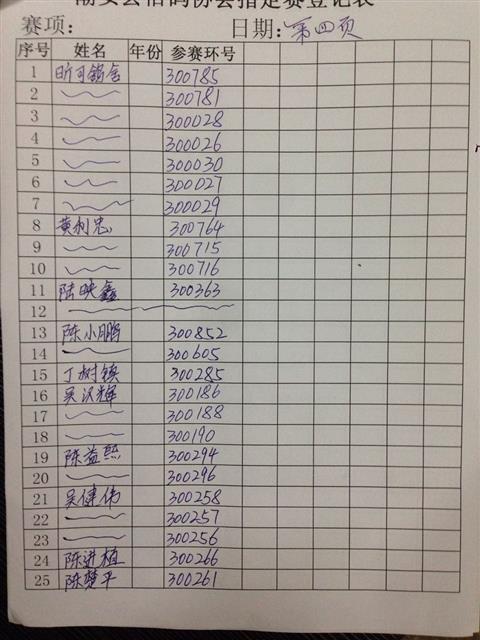 潮安县信鸽协会指定赛登记表
赛项： 日期：第四页
序号 姓名 年份 参赛环号
1 300785
2 300781
3 300028
4 300026
5 300030
6 300027
7 300029
8 黄利忠 300764
9 300715
10 300716
11 陆映鑫 300363
12
13 陈小鹏 300852
14 300605
15 丁树镇 300285
16 吴汉辉 300186
17 300188
18 300190
19 陈益熙 300294
20 300296
21 吴健伟 300258
22 300257
23 300256
24 陈进植 300266
25 陈楚平 300261